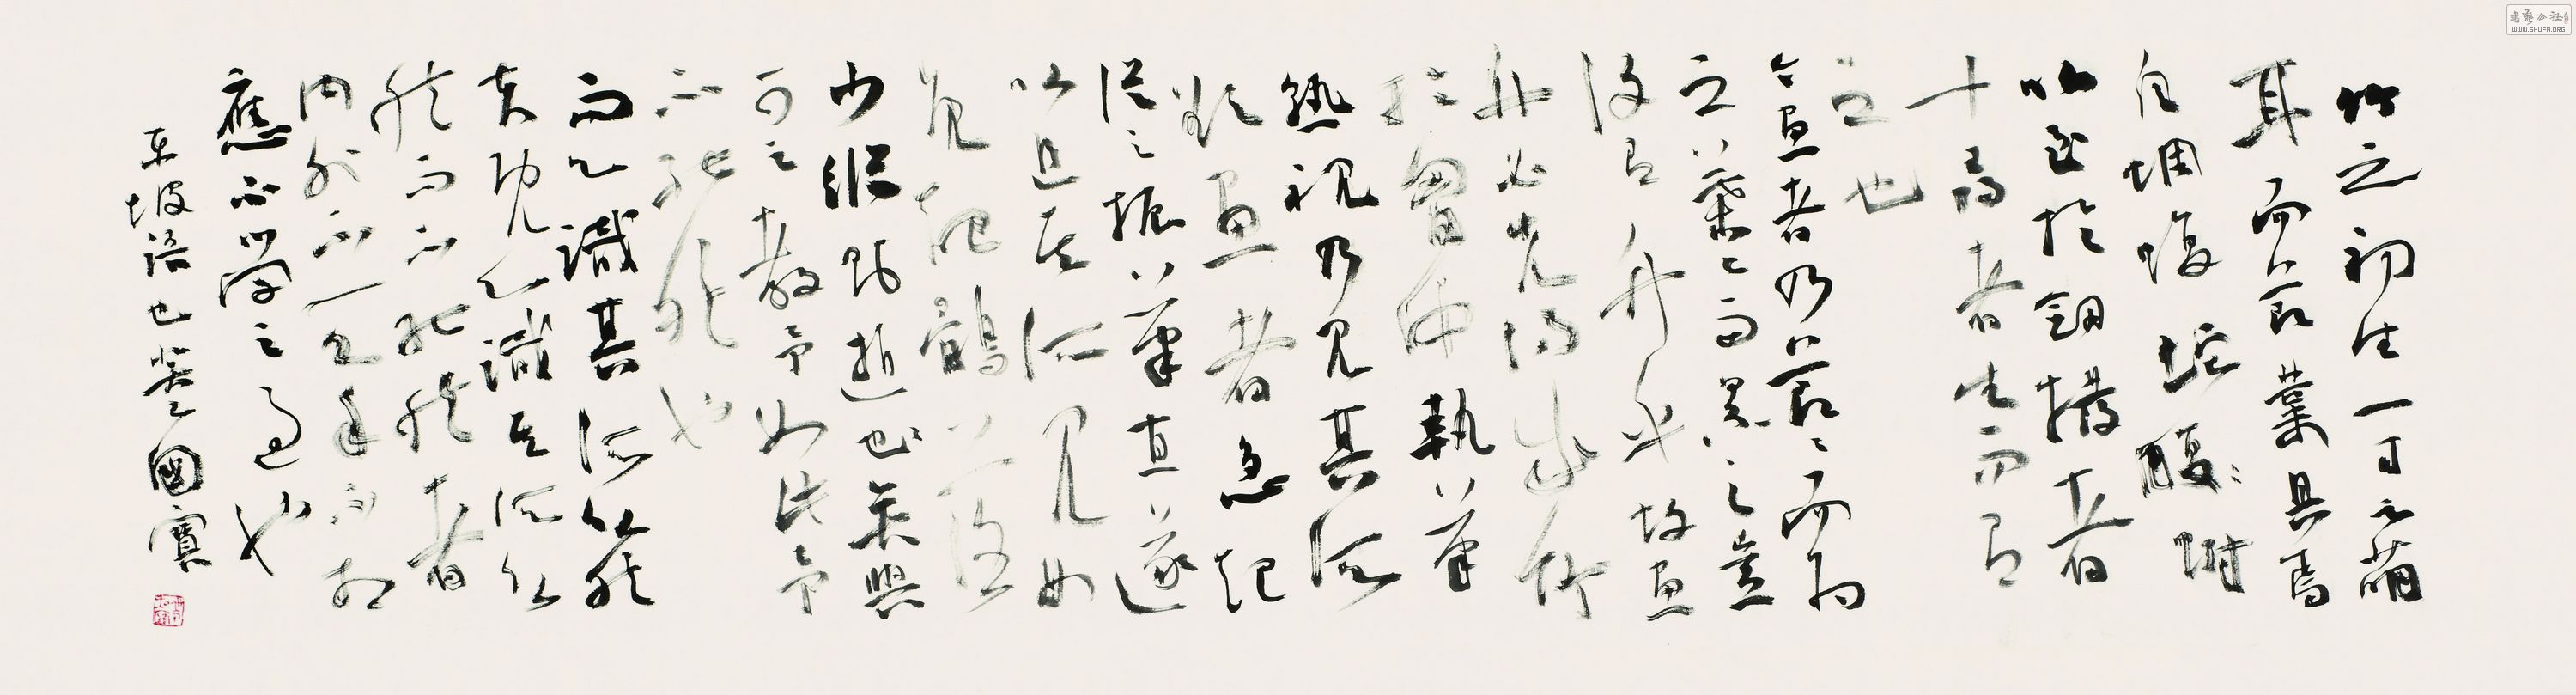 竹之初生一寸之萌
耳而節葉具焉
自蜩蝮蛇腹蚹
以至於劍拔者
十尋者生而有
之也
今畫者乃節々而為
之葉々而累之豈
復有竹乎故畫
竹必先得成竹
於胸中執筆
熟視乃見其所
欲畫者急起
從之振筆直遂
以追其所見如
兔起鶻落
少縱則逝也矣與
可之教予如此予
不能然也
而心識其所以然
夫既心識其所以
然而不能然者
內外不一心手不相
應不學之過也
東坡語也國寶
WWW.SHUFA.ORG